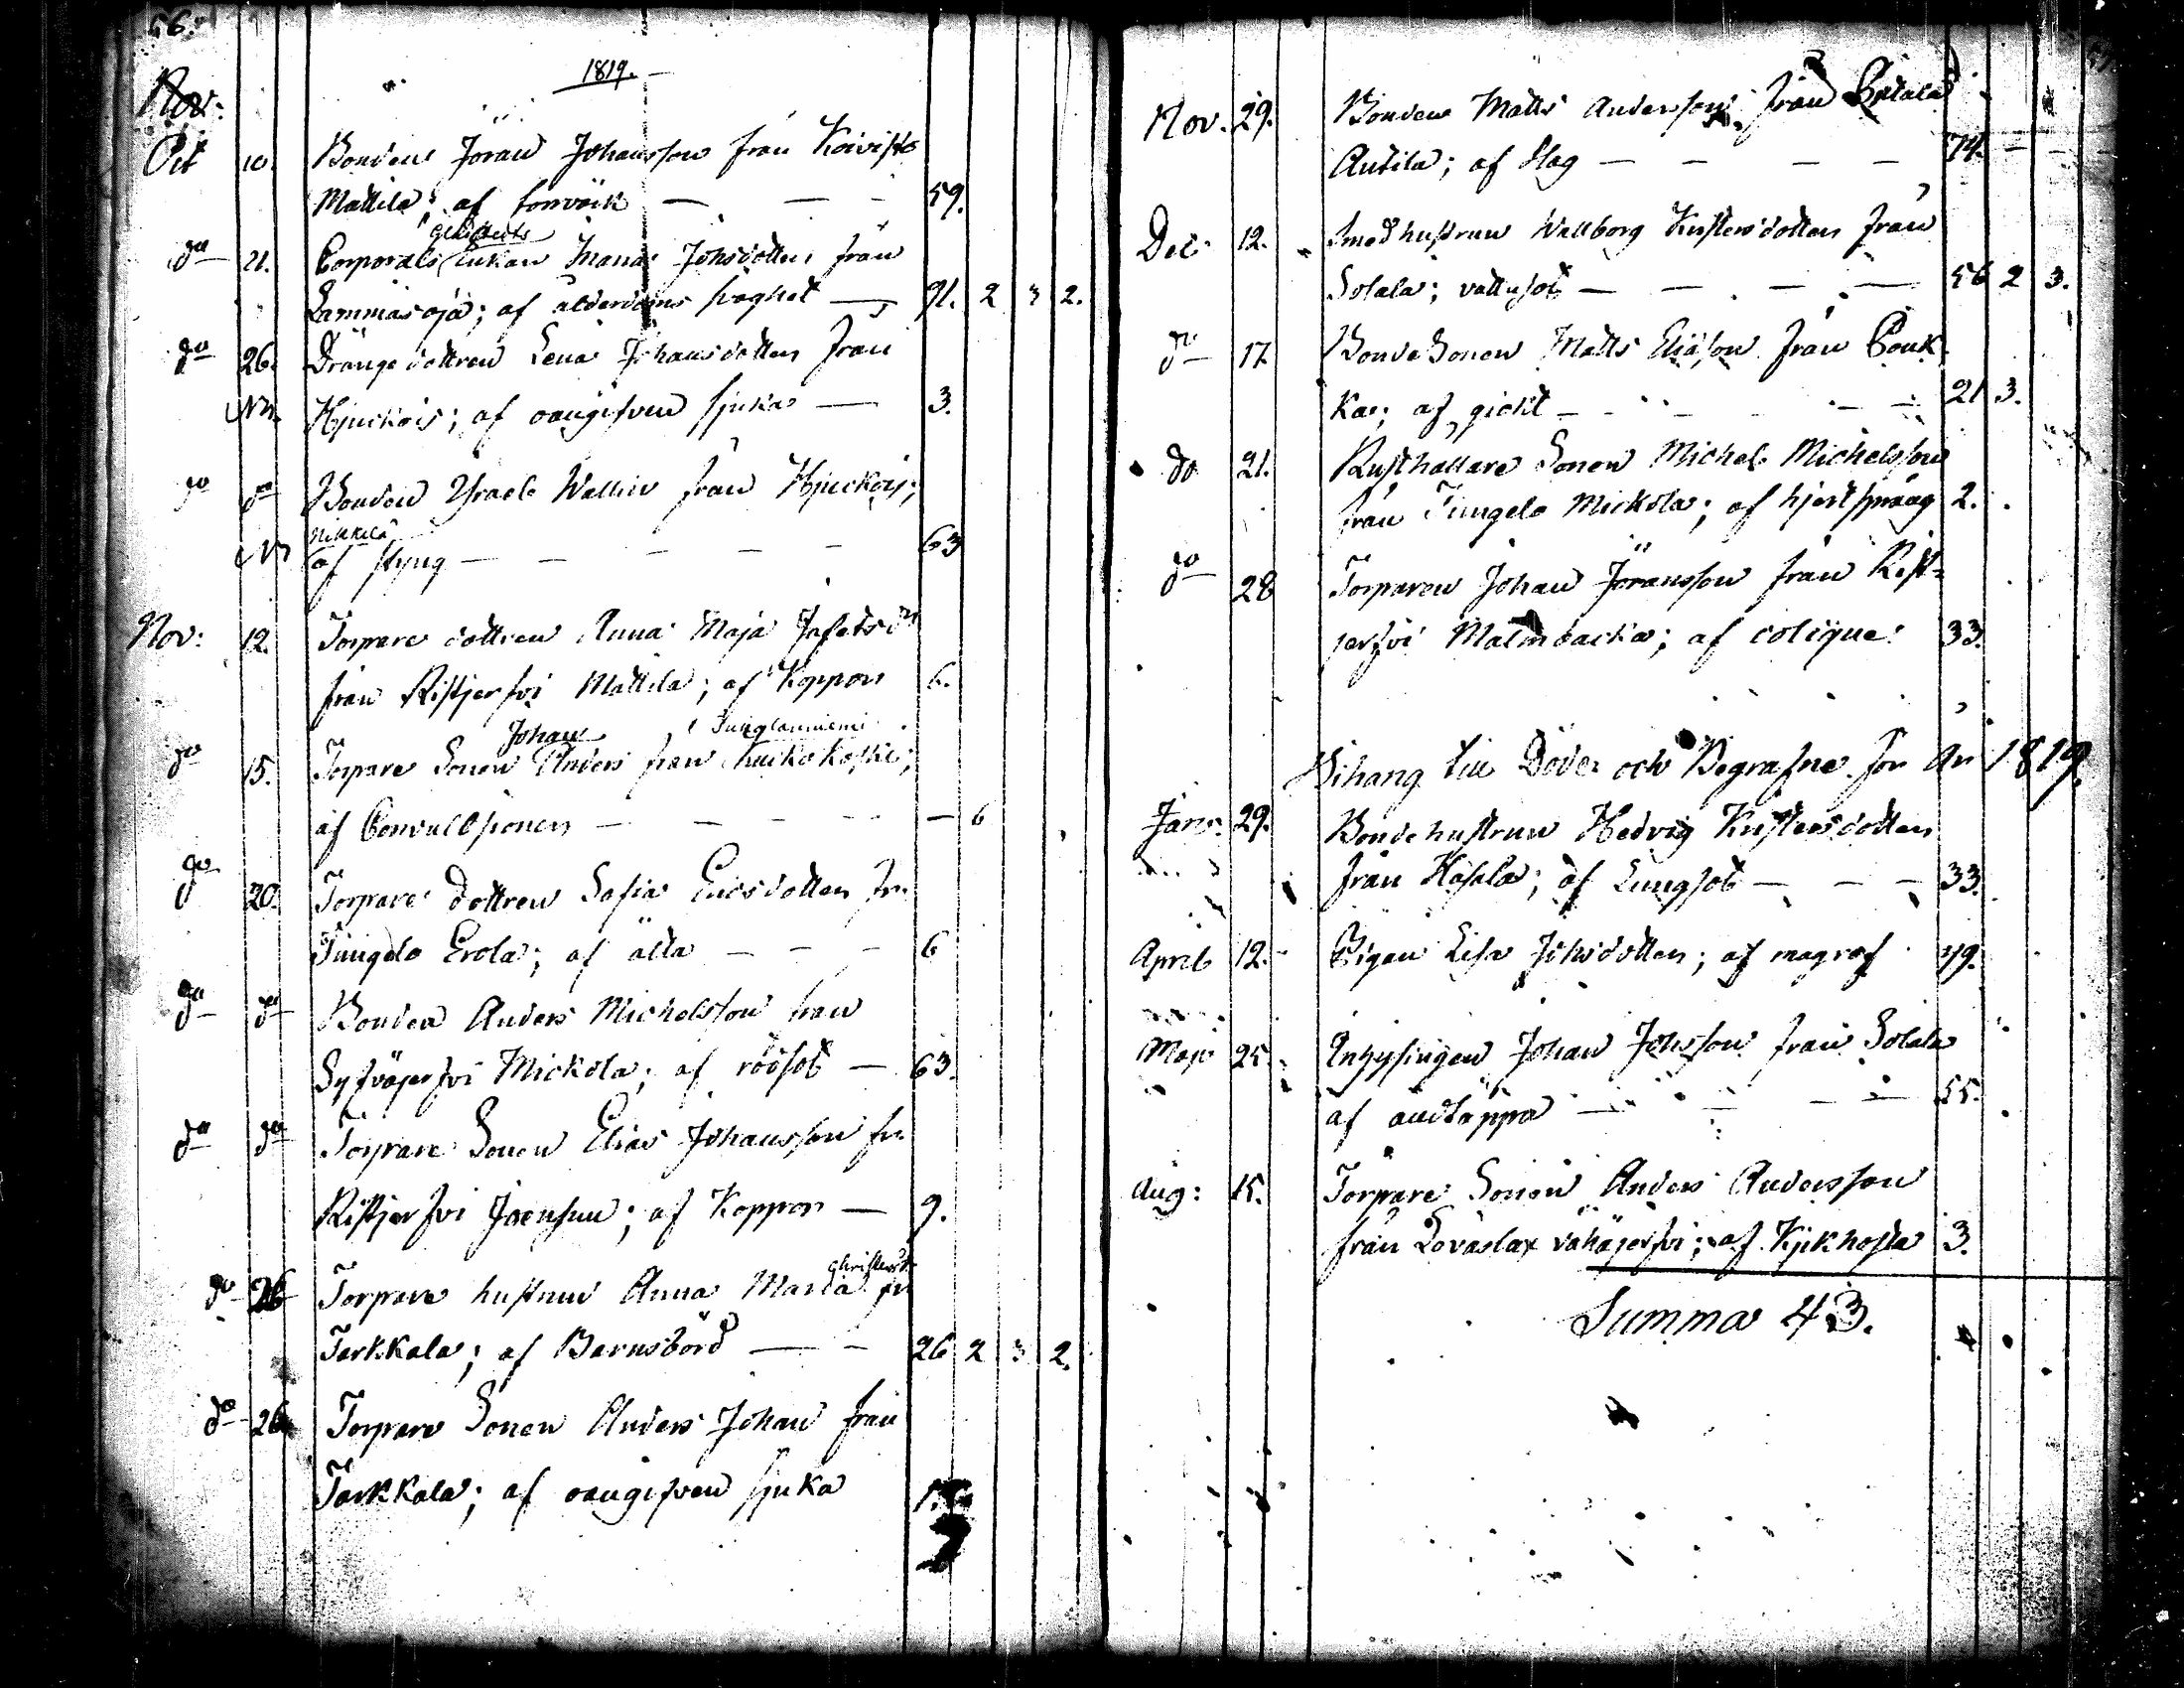 56.
1819.
Nov:
Oct 10. Bonden Jöran Johansson från Koivisto
Mattila; af torrvärk — — — 59.
do 21. Corporals Enkan Maria Johsdotter från
Lammasoja; af ålderdoms svaghet — 91. 2 3 2.
do 26. Drängedottren Lena Johansdotter från
Hjuckois; af oangifven sjuka — 3.
do do Bonden Israel Wallin från Hjuckois;
Nikkilä
af styng — — — — — 63
Nov: 12. Torpare dottren Anna Maja Jafetsdr
från Ristjerfvi Mattila; af Koppor 6.
Johan Junglanniemi
do 15. Torpare Sonen Anders från Kuikokoski;
af Convulssioner — — — — — 6
do 20. Torpare Dottren Sofia Ericsdotter fr.
Tiingelo Erola; af älta — — — 6
do do Bonden Anders Michelsson från
Syfväjerfvi Mickola; af rödsot — 63.
do do Torpare Sonen Elias Johansson fr.
Ristjerfvi Joensuu; af Koppor — 9.
Christersdr
do 26 Torpare hustrun Anna Maria fr.
Tarkkala; af Barnsbörd — — 26 2 3 2.
do 26 Torpare Sonen Anders Johan från
Tarkkala; af oangifven sjuka 1.
Nov. 29. Bonden Matts Andersson från
Antila; af slag — — — — 74. — — —
Dec: 12. Smedhustrun Wallborg Kristersdotter från
Solala; vattusot — — — — 56 2 3.
do 17. Bonde Sonen Matts Eliäson från Pouk-
ka; af gickt — — — — 21 3.
do 21. Rusthållare Sonen Michel Michelsson
från Tiingelo Mickola; af hjertspräng 2.
do 28 Torparen Johan Jöransson från Rist-
jerfvi Malmbacka; af colique. 33.
Bihang till Döde och Begrafne för År 1819.
Janr: 29. Bondehustrun Hedvig Kristersdotter
från Hosala; af Lungsot — — — 33.
April 12. Pigan Lisa Johsdotter; af magref 49.
Maji 25. Inhysingen Johan Johsson från Solala
af andtäppa — — — — — 55.
Aug: 15. Torpare Sonen Anders Andersson
från Lovaslax vähäjerfvi; af Kjikhosta 3.
Summa 43.